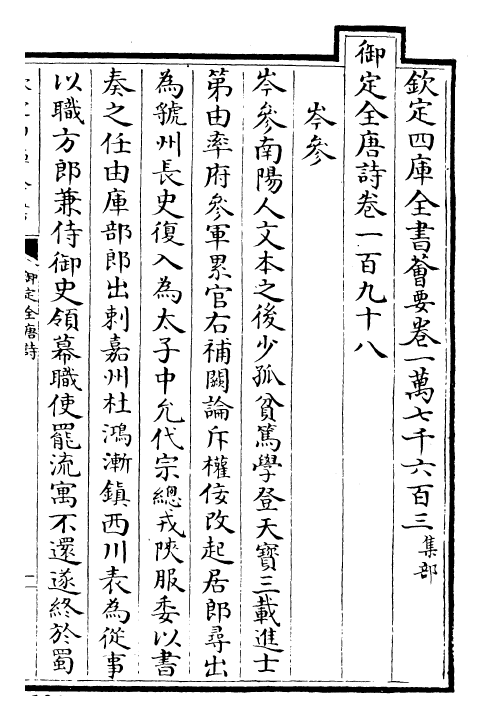 欽定四庫全書薈要卷一萬七千六百三 集部
御定全唐詩卷一百九十八
岑參
岑參南陽人文本之後少孤貧篤學登天寶三載進士
第由率府參軍累官右補闕論斥權佞改起居郎尋出
為虢州長史復入為太子中允代宗總戎陜服委以書
奏之任由庫部郎出刺嘉州杜鴻漸鎮西川表為從事
以職方郎兼侍御史領幕職使罷流寓不還遂終於蜀
御定全唐詩